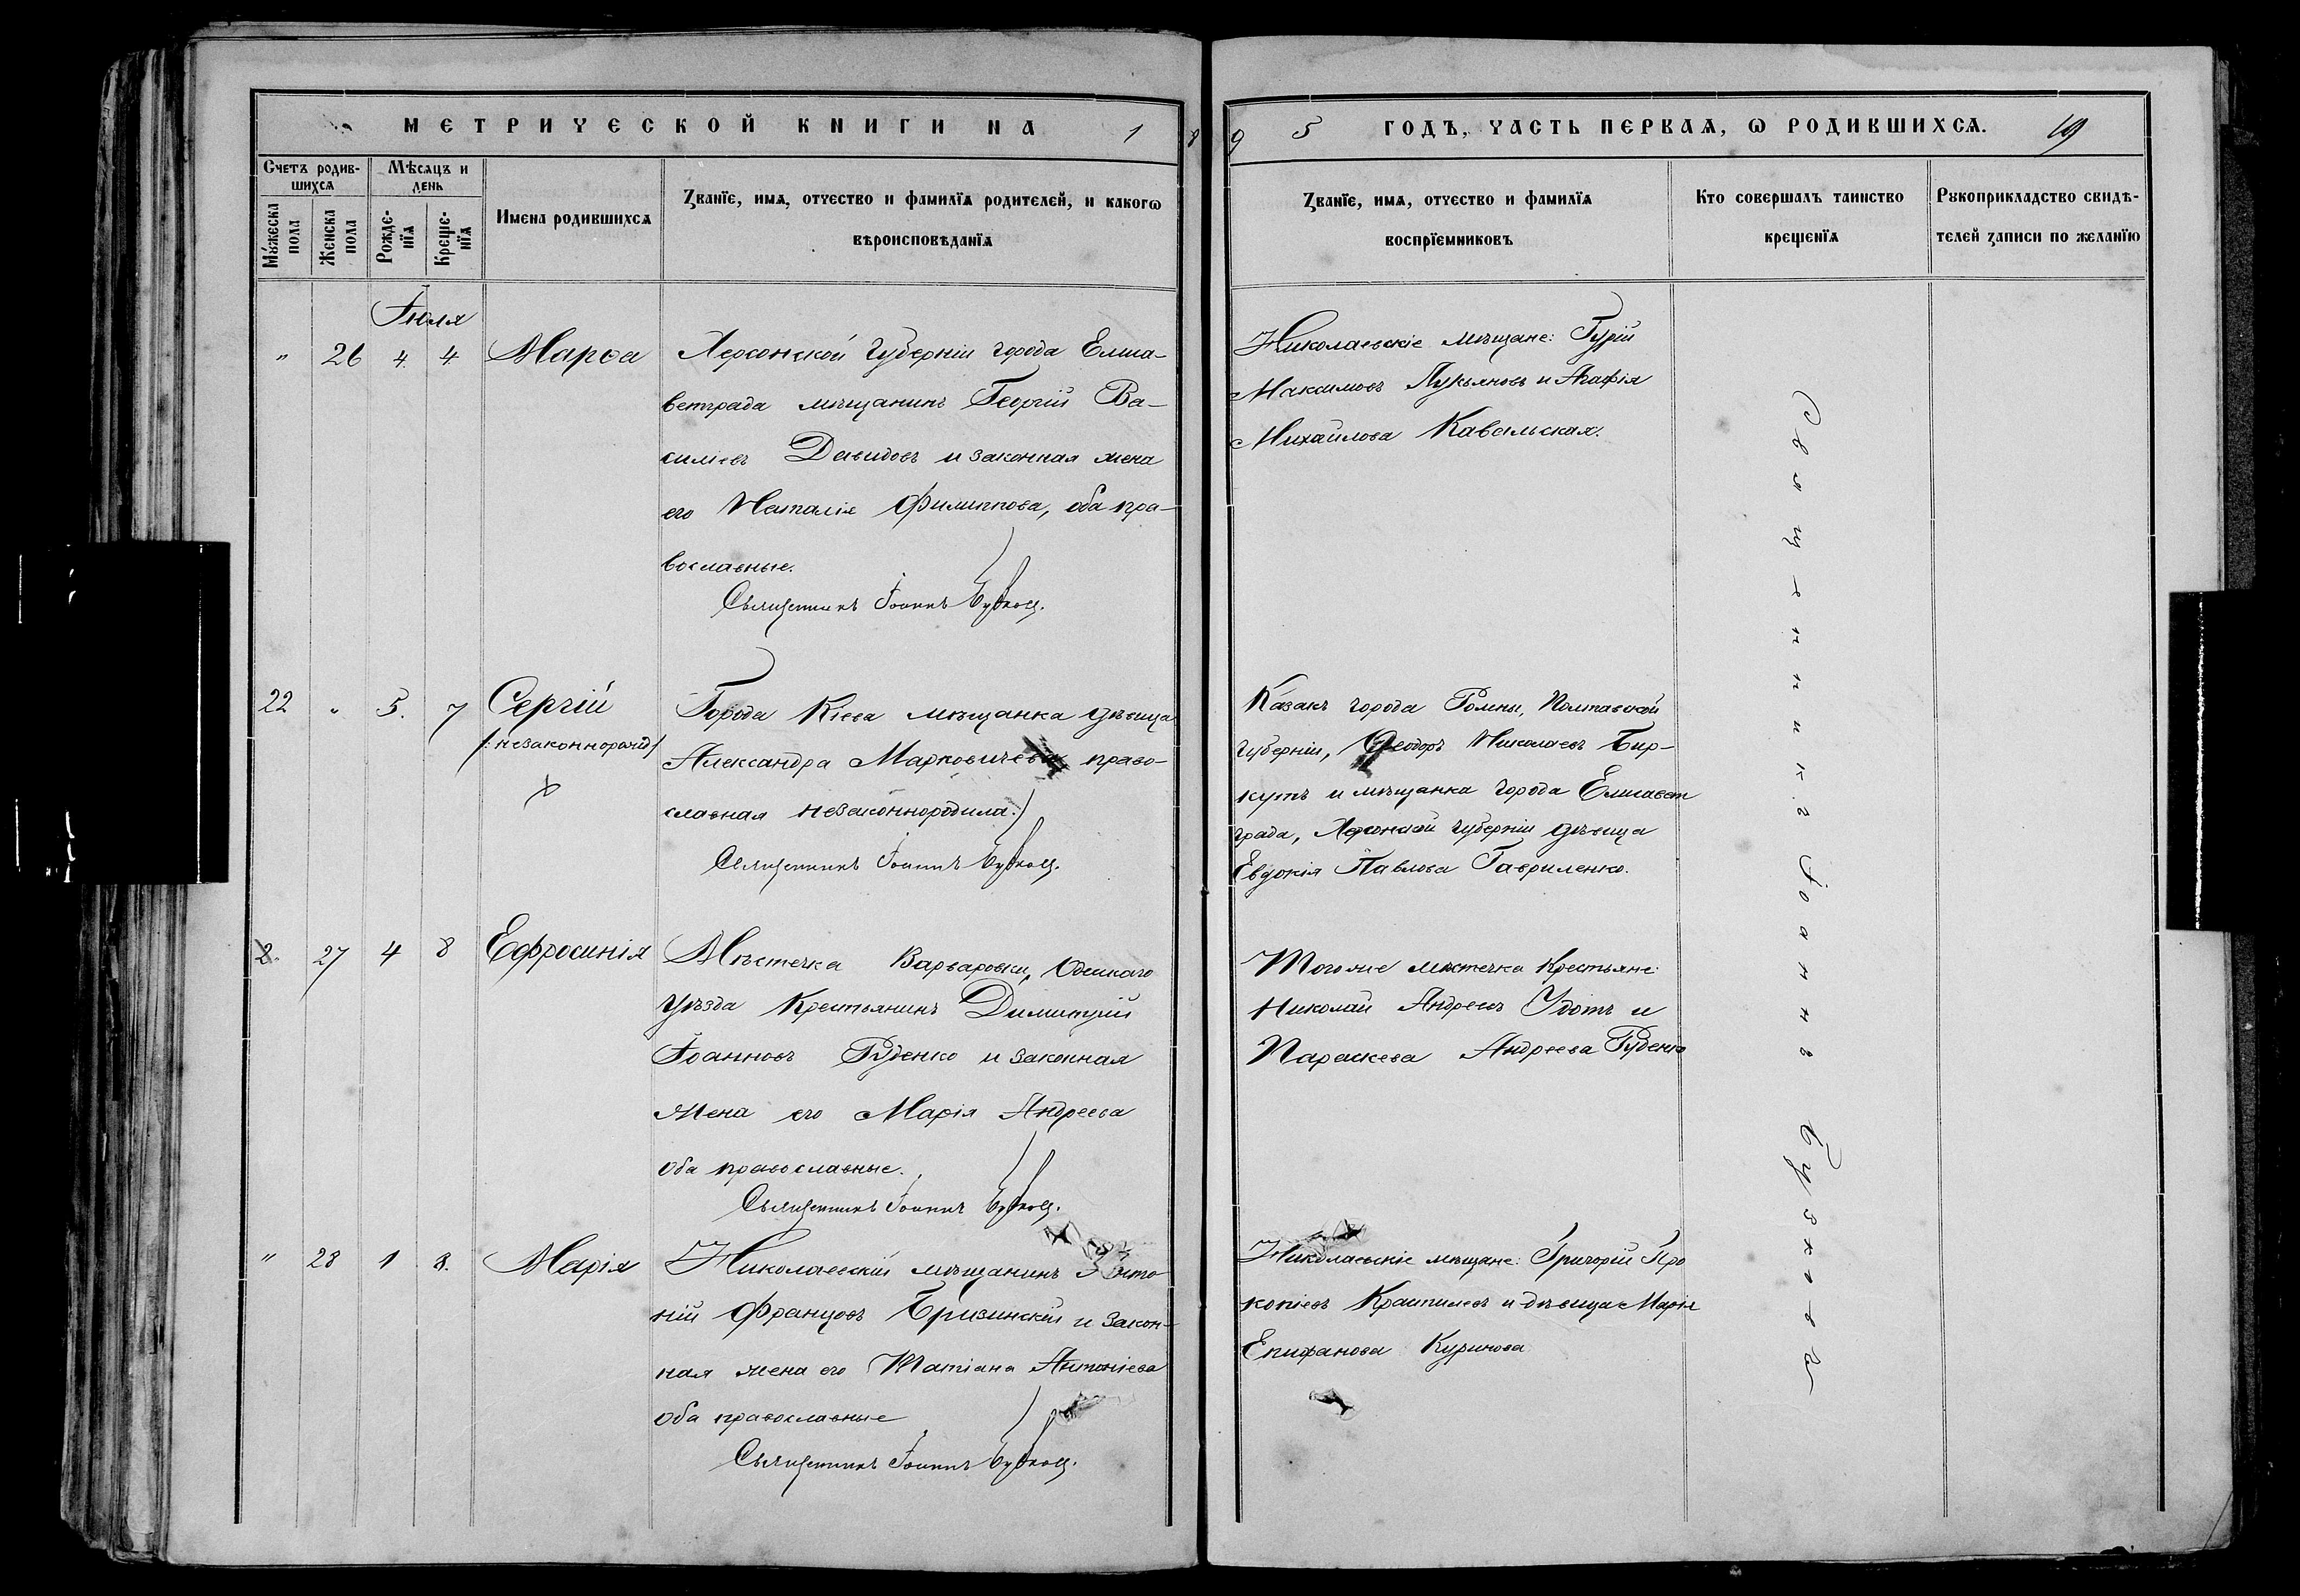 МЕТРИЧЕСКОЙ КНИГИ НА 1 8 9 5 ГОДЪ, ЧАСТЬ ПЕРВАѦ, Ѡ РОДИВШИХСѦ. 19
Счетъ родив-
шихсѧ
Мѣсѧцъ и
день
Мꙋжеска
пола
Женска
пола
Рожде-
нїѧ
Креще-
нїѧ
Имена родившихсѧ
Званїе, имѧ, отчество и фамилїѧ родителей, и какогѡ
вѣроисповѣданїѧ
Званїе, имѧ, отчество и фамилїѧ
воспрїемниковъ
Кто совершалъ таинство
крещенїѧ
Рꙋкоприкладство свидѣ-
телей записи по желанїю
Іюля
" 26 4. 4 Марѳа
Херсонской губерніи города Елиса-
ветграда мѣщанинъ Георгій Ва-
силіевъ Давидовъ и законная жена
его Наталія Филиппова, оба пра-
вославные.
Священникъ Іоаннъ
Николаевскіе мѣщане: Гурій
Максимовъ Лукьяновъ и Агафія
Михайлова Кавельская.
22 " 5. 7 Сергій
/:незаконнорожд:/
Города Кіева мѣщанка дѣвица
Александра Марковичева право-
славная незаконнородила:
Священникъ Іоаннъ
Казакъ города Ромны, Полтавской
губерніи, Ѳеодоръ Николаевъ Бир-
кутъ и мѣщанка города Елисавет
града, Херсонской губерніи дѣвица
Евдокія Павлова Гавриленко.
27 4 8 Ефросинія
Мѣстечка Варваровки, Одесскаго
уѣзда крестьянинъ Димитрій
Іоанновъ Руденко и законная
жена его Марія Андреева
оба православные.
Священникъ Іоаннъ
Тогоже мѣстечка крестьяне:
Николай Андреевъ Удотъ и
Параскева Андреева Руденко
" 28 1 8. Марія
Николаевскій мѣщанинъ Анто
ній Францовъ Бризинскій и закон-
ная жена его Татіана Антоніева
оба православные
Священникъ Іоаннъ
Николаевскіе мѣщане: Григорій Про
копіевъ и дѣвица Марія
Епифанова Куринова
Священникъ Іоаннъ